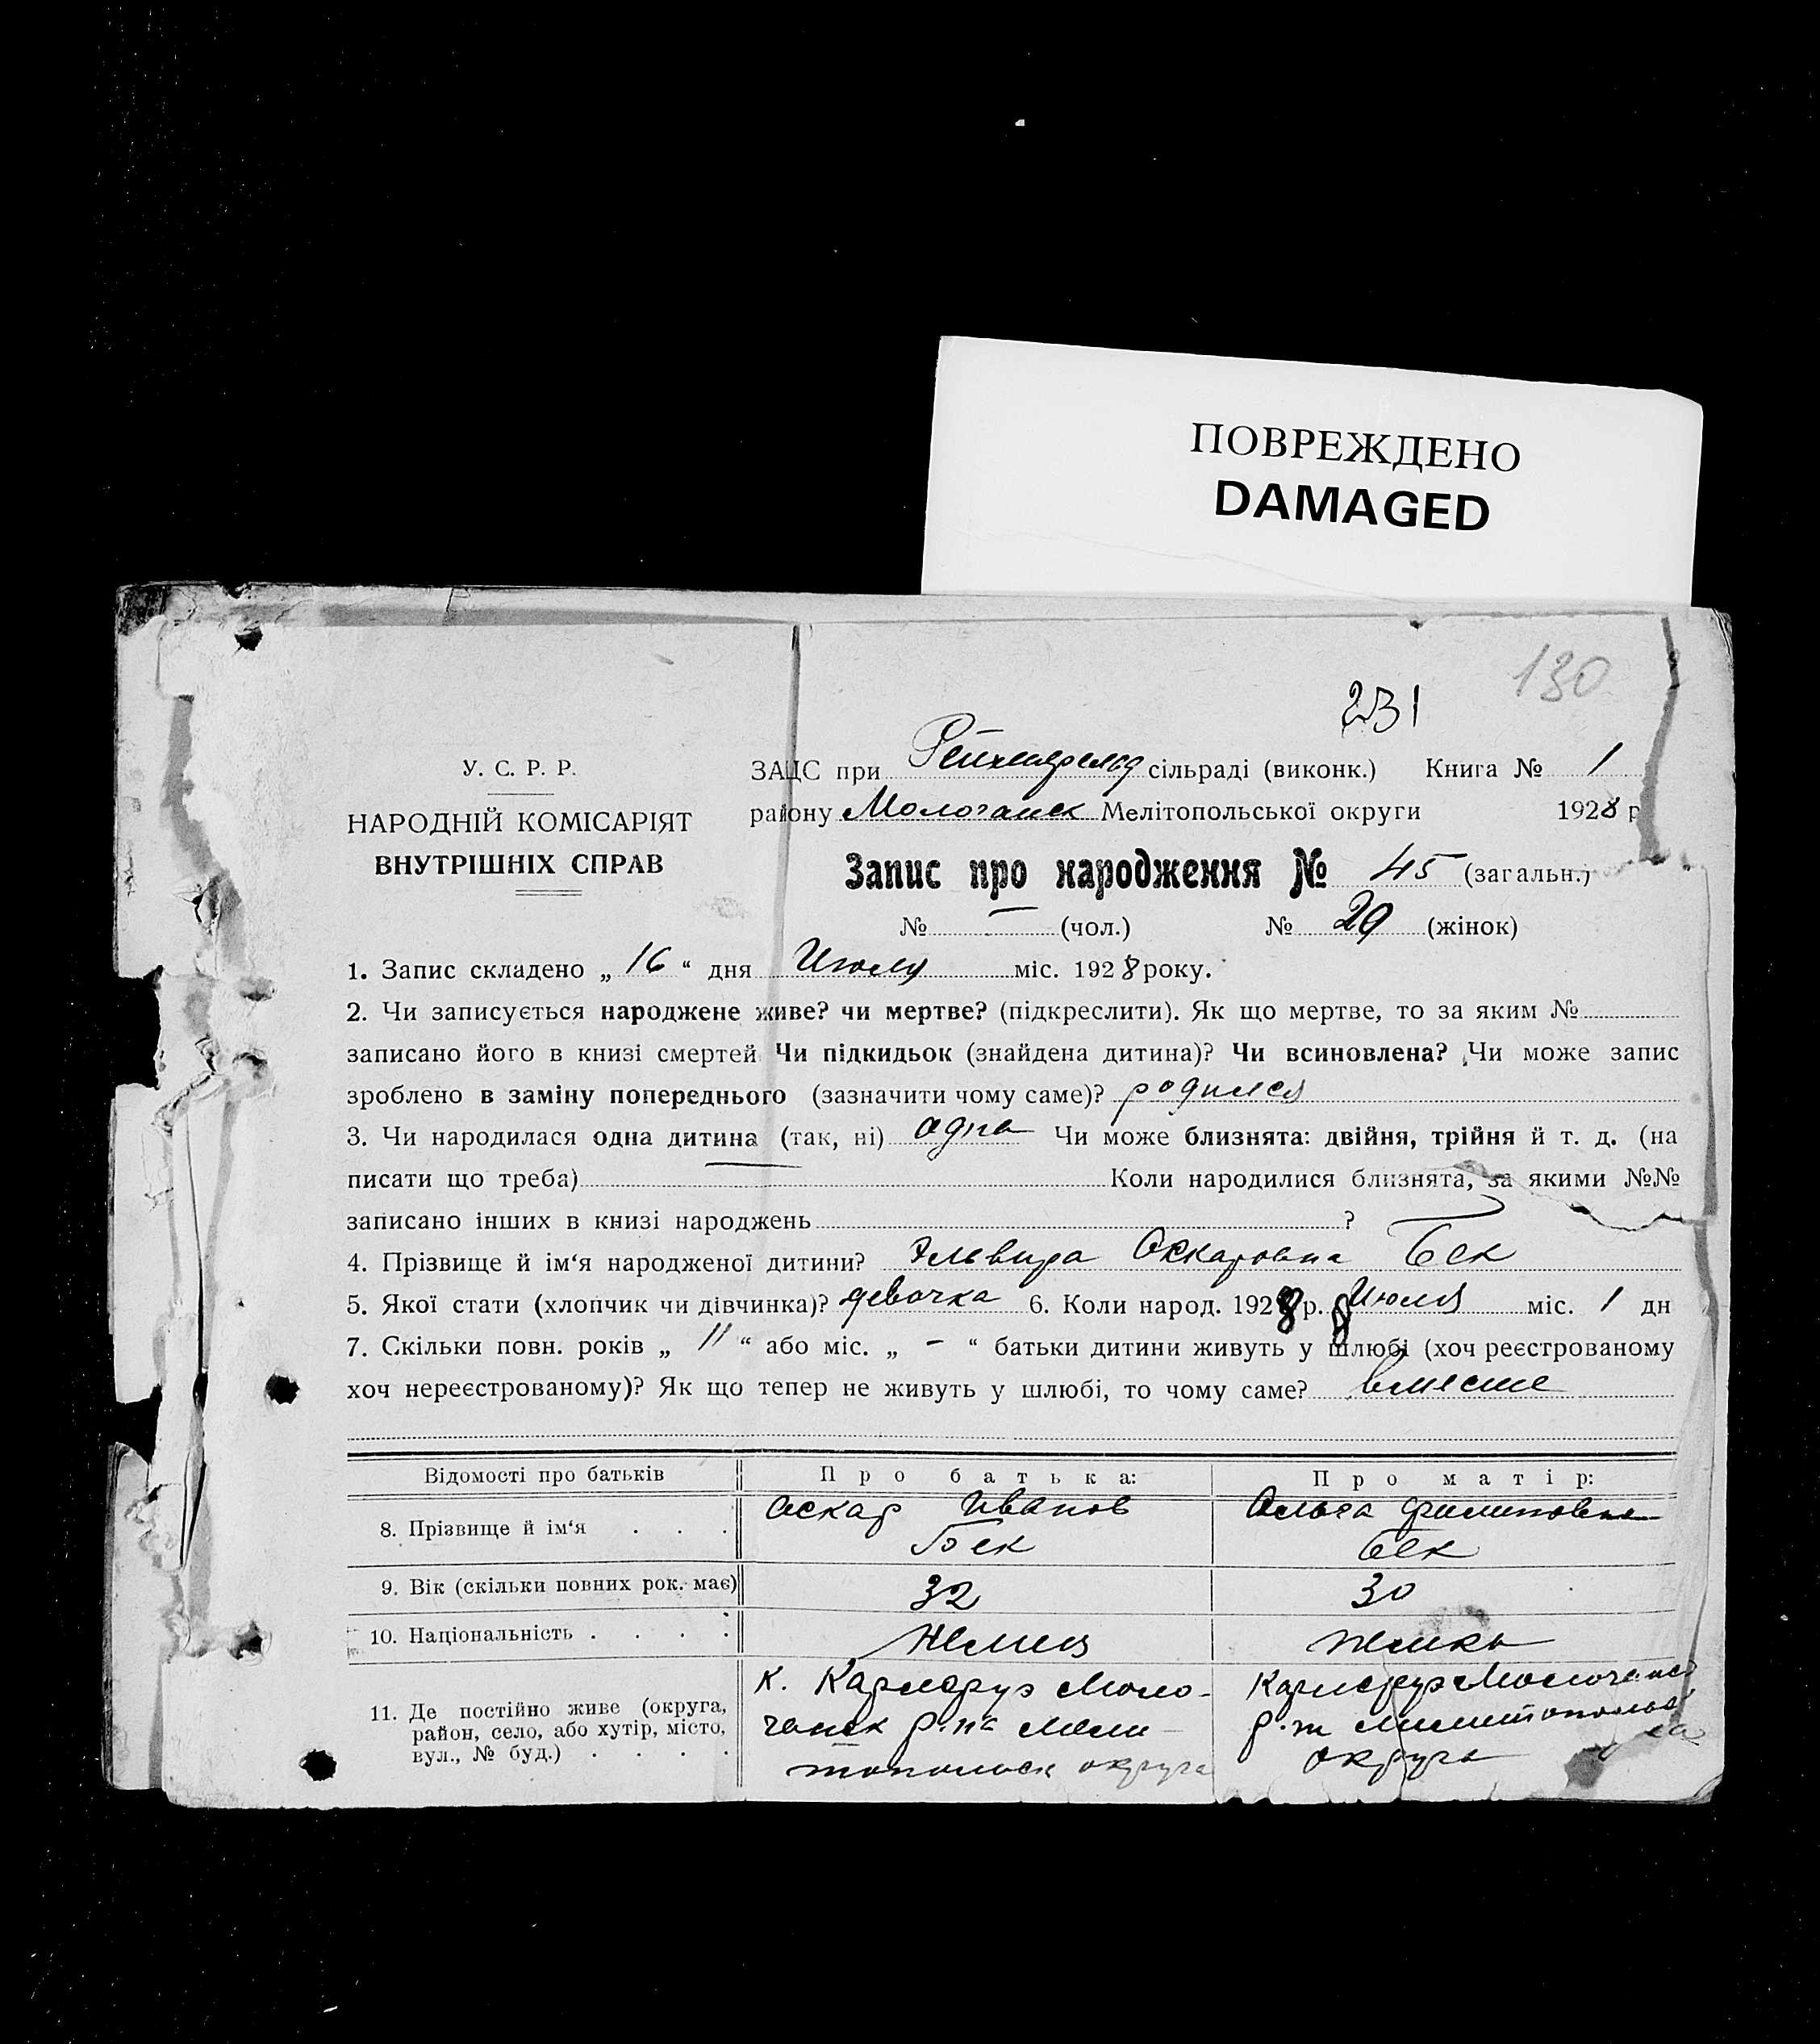 ПОВРЕЖДЕНО
DAMAGED
130
231
У. С. Р. Р.
НАРОДНІЙ КОМІСАРІЯТ
ВНУТРІШНІХ СПРАВ
ЗАЦС при Рейхенфельд сільраді (виконк.) Книга № 1
району Молочанск Мелітопольської округи 1928 р
Запис про народження № 45 (загальн.)
№ — (чол.) № 29 (жінок)
1. Запис складено „ 16 “ дня Июля міс. 1928 року.
2. Чи записується народжене живе? чи мертве? (підкреслити). Як що мертве, то за яким №
записано його в книзі смертей Чи підкидьок (знайдена дитина)? Чи всиновлена? Чи може запис
зроблено в заміну попереднього (зазначити чому саме)? родился
3. Чи народилася одна дитина (так, ні) одна Чи може близнята: двійня, трійня й т. д. (на
писати що треба) Коли народилися близнята, за якими №№
записано інших в книзі народжень ?
4. Прізвище й ім‘я народженої дитини? Эльвира Оскаровна Бек
5. Якої стати (хлопчик чи дівчинка)? девочка 6. Коли народ. 1928 р. Июля міс. 1 дн
7. Скільки повн. років „ 11 “ або міс. „ - “ батьки дитини живуть у шлюбі (хоч реєстрованому
хоч нереєстрованому)? Як що тепер не живуть у шлюбі, то чому саме? вместе
Відомості про батьків Про батька: Про матір:
8. Прізвище й ім‘я . . . Оскар Иванов Бек Ольга Филиповна Бек
9. Вік (скільки повних рок. має) 32 30
10. Національність . . . . Немец Немка
11. Де постійно живе (округа,
район, село, або хутір, місто,
вул., № буд.) . . . .
к. Карлсруэ Моло-
чанск р-на Мели-
топольск округа
Карлсруэ Молочанск
р-н Мелитопольск
округа